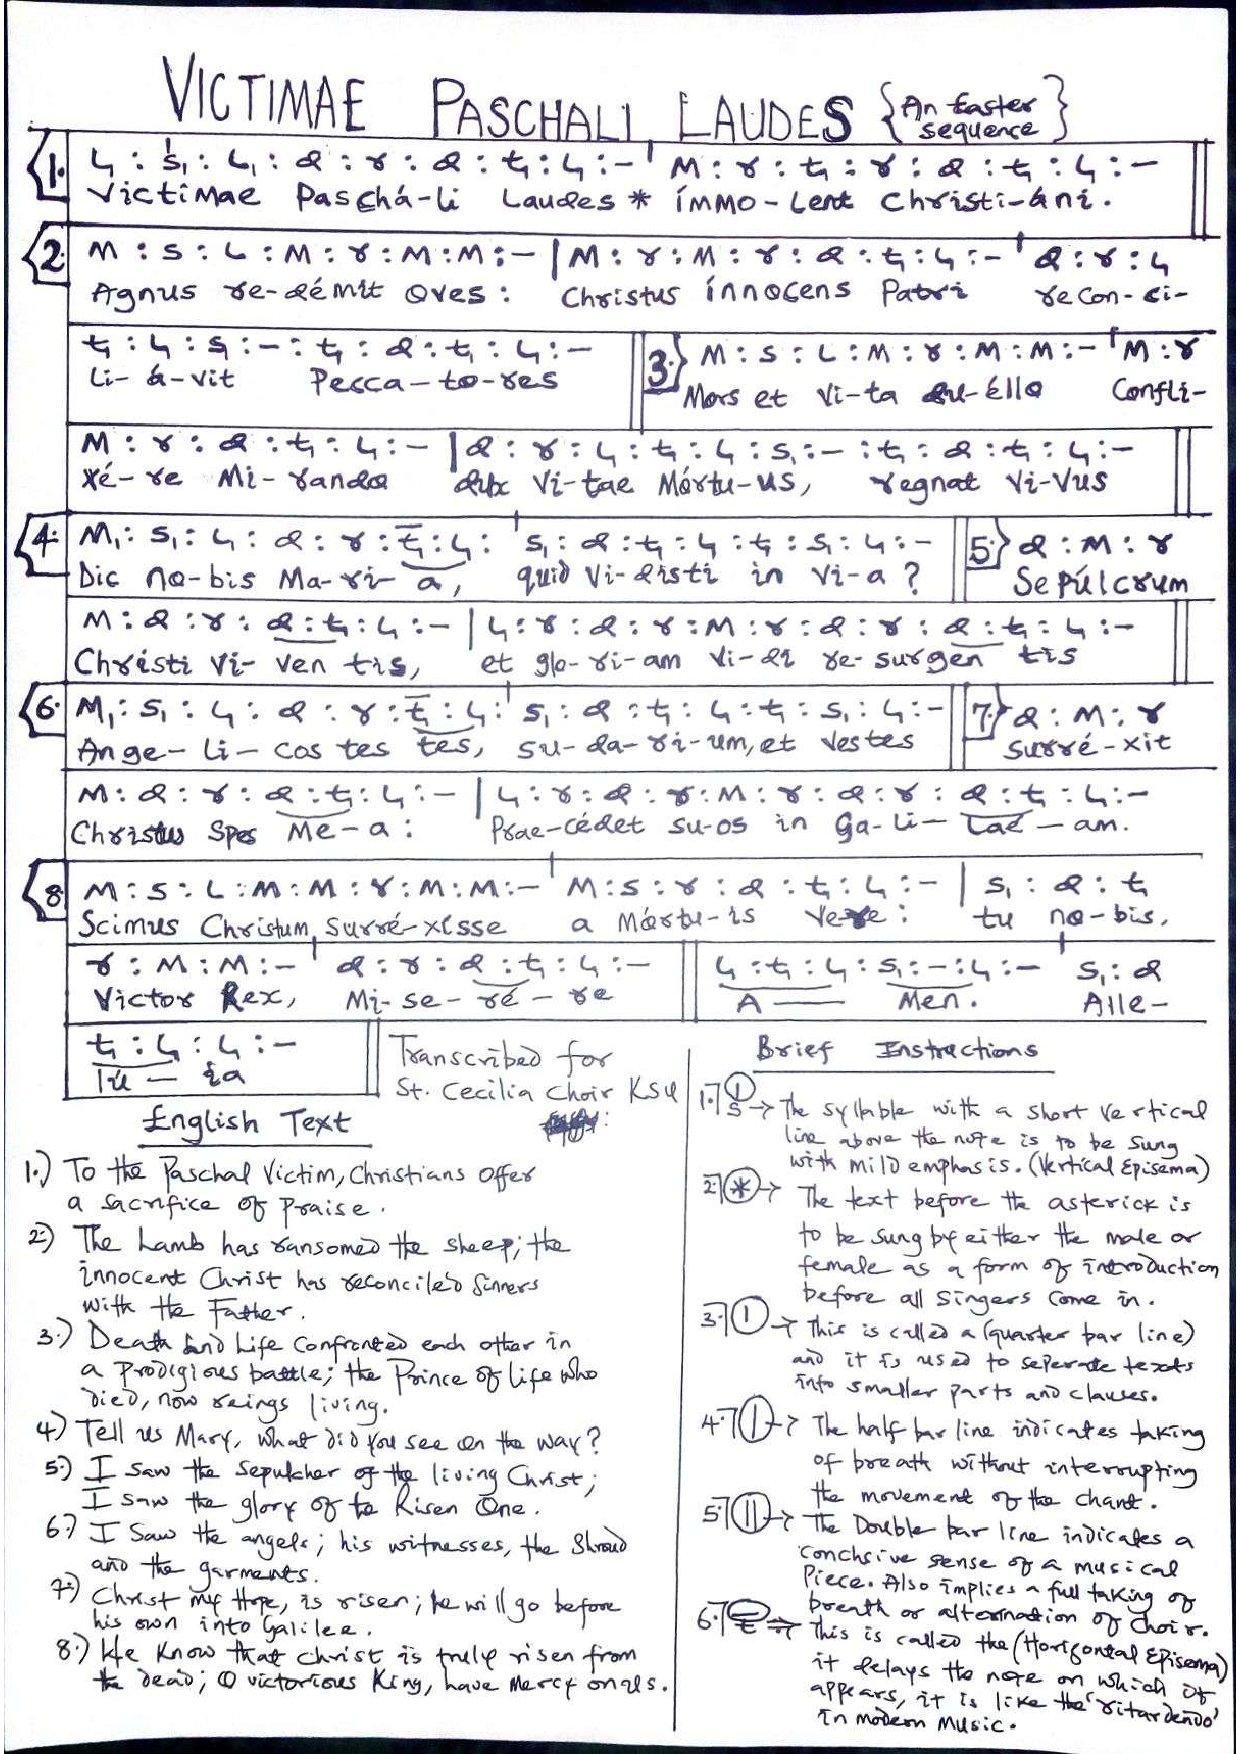 VICTIMAE PASCHALI LAUDES {An Easter sequence}
1. l₁ : s₁ : l₁ : d : r : d : t₁ : l₁ : – ' m : r : t₁ : r : d : t₁ : l₁ : –
Victimae Paschá-li Laudes * ímmo-lent Christi-áni.
2. m : s : l : m : r : m : m : – | m : r : m : r : d : t₁ : l₁ : – ' d : r : l₁
Agnus re-démit oves: Christus ínnocens Patri recon-ci-
t₁ : l₁ : s₁ : – : t₁ : d : t₁ : l₁ : –
li-á-vit Pecca-to-res
3. m : s : l : m : r : m : m : – ' m : r
Mors et vi-ta du-éllo Confli-
m : r : d : t₁ : l₁ : – | d : r : l₁ : t₁ : l₁ : s₁ : – : t₁ : d : t₁ : l₁ : –
xé-re Mi-rando dux Vi-tae Mórtu-us, regnat Vi-vus
4. m₁ : s₁ : l₁ : d : r : t₁ : l₁ : ' s₁ : d : t₁ : l₁ : t₁ : s₁ : l₁ : –
Dic no-bis Ma-ri-a, quid Vi-disti in Vi-a ?
5. d : m : r
Sepúlcrum
m : d : r : d : t₁ : l₁ : – | l₁ : r : d : r : m : r : d : r : d : t₁ : l₁ : –
Christi Vi-ven tis, et glo-ri-am vi-di re-surgen tis
6. m₁ : s₁ : l₁ : d : r : t₁ : l₁ : ' s₁ : d : t₁ : l₁ : t₁ : s₁ : l₁ : –
Ange-li-cos tes tes, su-da-ri-um, et vestes
7. d : m : r
surré-xit
m : d : r : d : t₁ : l₁ : – | l₁ : r : d : r : m : r : d : r : d : t₁ : l₁ : –
Christus Spes Me-a : Prae-cédet su-os in Ga-li-laé-am.
8. m : s : l : m : m : r : m : m : – ' m : s : r : d : t₁ : l₁ : – | s₁ : d : t₁
Scimus Christum surré-xísse a Mórtu-is vere : tu no-bis,
r : m : m : – ' d : r : d : t₁ : l₁ : –
Victor Rex, Mi-se-ré-re
l₁ : t₁ : l₁ : s₁ : – : l₁ : – ' s₁ : d
A — Men. Alle-
t₁ : l₁ : l₁ : –
lú — ia
Transcribed for
St. Cecilia Choir KSU
English Text
1.) To the Paschal Victim, Christians offer
a sacrifice of praise.
2.) The Lamb has ransomed the sheep; the
innocent Christ has reconciled sinners
with the Father.
3.) Death and Life confronted each other in
a prodigious battle; the Prince of life who
died, now reings living.
4.) Tell us Mary, what did you see on the way?
5.) I saw the sepulcher of the living Christ;
I saw the glory of the Risen One.
6.) I Saw the angels; his witnesses, the Shroud
and the garments.
7.) Christ my Hope, is risen; he will go before
his own into Galilee.
8.) We know that christ is truly risen from
the dead; O victorious King, have mercy on us.
Brief Instructions
1. s → The syllable with a short vertical
line above the note is to be sung
with mild emphasis. (Vertical Episema)
2. * → The text before the asterick is
to be sung by either the male or
female as a form of introduction
before all singers come in.
3. ' → This is called a (quarter bar line)
and it is used to seperate texts
into smaller parts and clauses.
4. | → The half bar line indicates taking
of breath without interrupting
the movement of the chant.
5. || → The Double bar line indicates a
conclusive sense of a musical
piece. Also implies a full taking of
breath or alternation of choir.
6. t → This is called the (Horizontal Episema)
it delays the note on which it
appears, it is like the 'ritardendo'
in modern music.